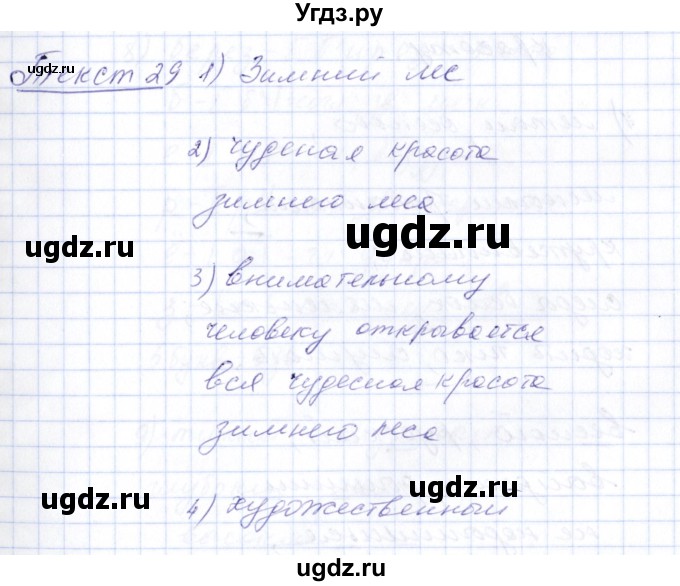 Угдз.ру
Текст 29 1) Зимний лес
ugdz.ru
ugdz.ru
2) чудесная красота
зимнего леса
ugdz.ru
ugdz.ru
3) внимательному
человеку открывается
вся чудесная красота
зимнего леса
ugdz.ru
ugdz.ru
4) художественный
ugdz.ru
ugdz.ru